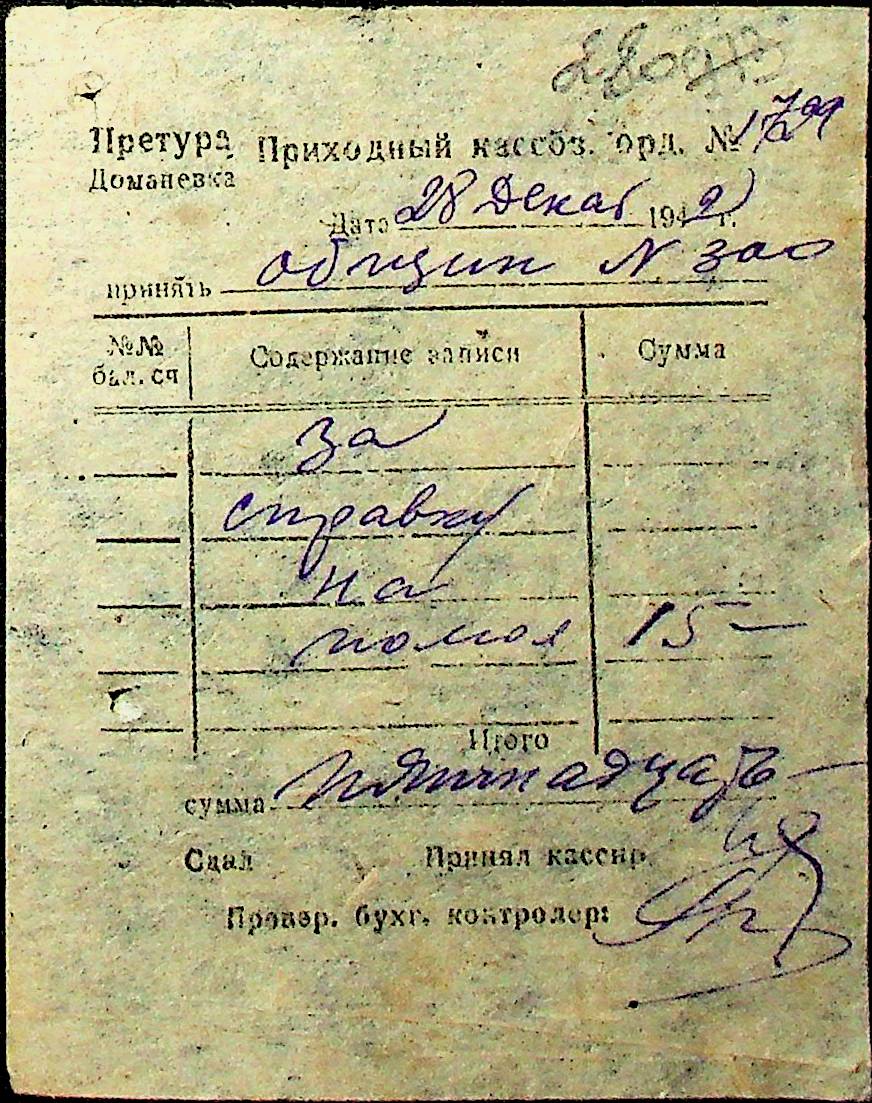 28093
Претура Приходный кассов. орд. № 1799
Доманевка
Дата 28 Декаб 1942 г.
принять общин N 300
№№ бал. сч Содержание записи Сумма
за
справку
на
помол 15 —
Итого
сумма пятнадцать —
Сдал Принял кассир
Провер. бухг. контролер: